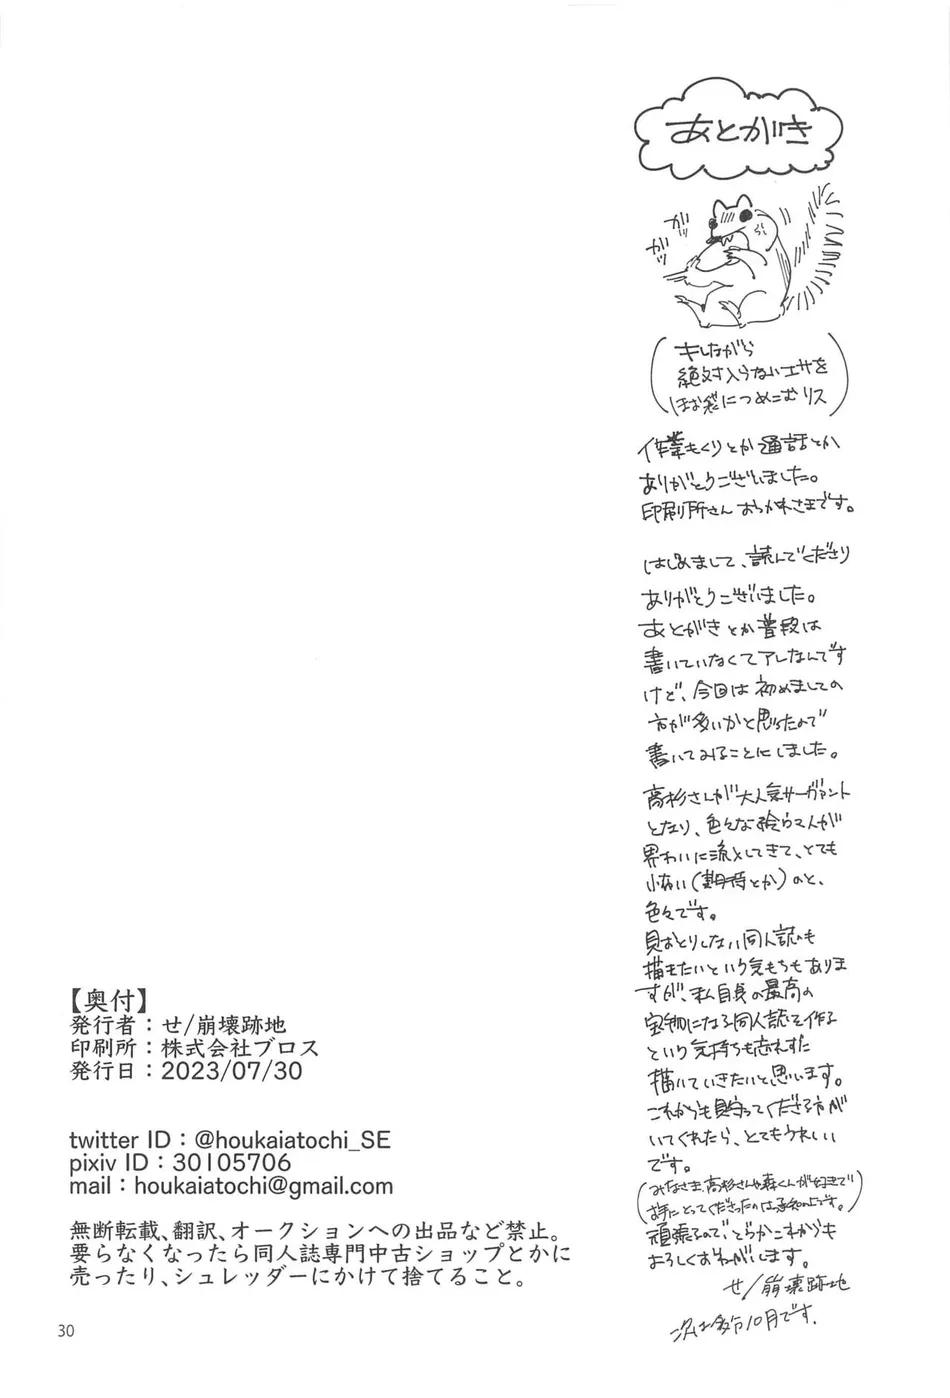 あとがき
ガッ
ガッ
キレながら
絶対入らないエサを
ほお袋につめこむリス
作業もくりとか通話とか
ありがとうございました。
印刷所さんおつかれさまです。
はじめまして、読んでくださり
ありがとうございました。
あとがきとか普段は
書いていなくてアレなんです
けど、今回は初めましての
方が多いかと思ったので
書いてみることにしました。
高杉さんが大人気サーヴァント
となり、色々な絵うま人が
界わいに流入してきて、とても
怖い(期待とか)のと、
色々です。
見おとりしない同人誌も
描きたいという気もちもありま
すが、私自身の最高の
宝物になる同人誌を作る
という気持ちも忘れずに
描いていきたいと思います。
これからも見守ってくださる方が
いてくれたら、とてもうれしい
です。
(みなさま、高杉さんや森くんが好きで
お手にとってくださったのは承知のようす。)
頑張るので、どうかこれからも
よろしくおねがいします。
せ/崩壊跡地
次は多分10月です。
【奥付】
発行者：せ/崩壊跡地
印刷所：株式会社ブロス
発行日：2023/07/30
twitter ID：@houkaiatochi_SE
pixiv ID：30105706
mail：houkaiatochi@gmail.com
無断転載、翻訳、オークションへの出品など禁止。
要らなくなったら同人誌専門中古ショップとかに
売ったり、シュレッダーにかけて捨てること。
30